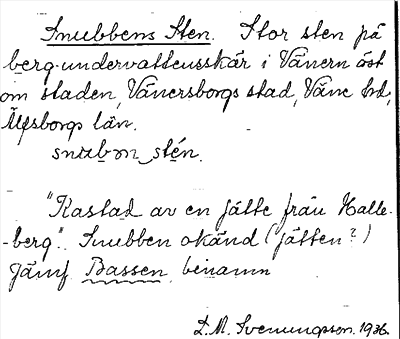 Snubbens Sten. Stor sten på
berg-undervattensskär i Vänern öst
om staden, Vänersborgs stad, Väne hd,
Älfsborgs län.
snubon stén.
"Kastad av en jätte från Halle-
-berg". Snubben okänd (jätten?)
Jämf Bassen, benamn
D.M. Svenungsson. 1936.